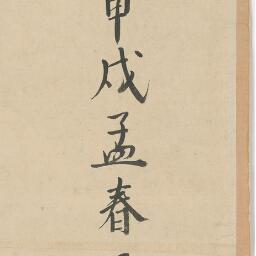 甲戌孟春